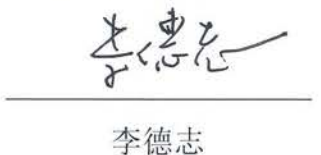 李德志
李德志